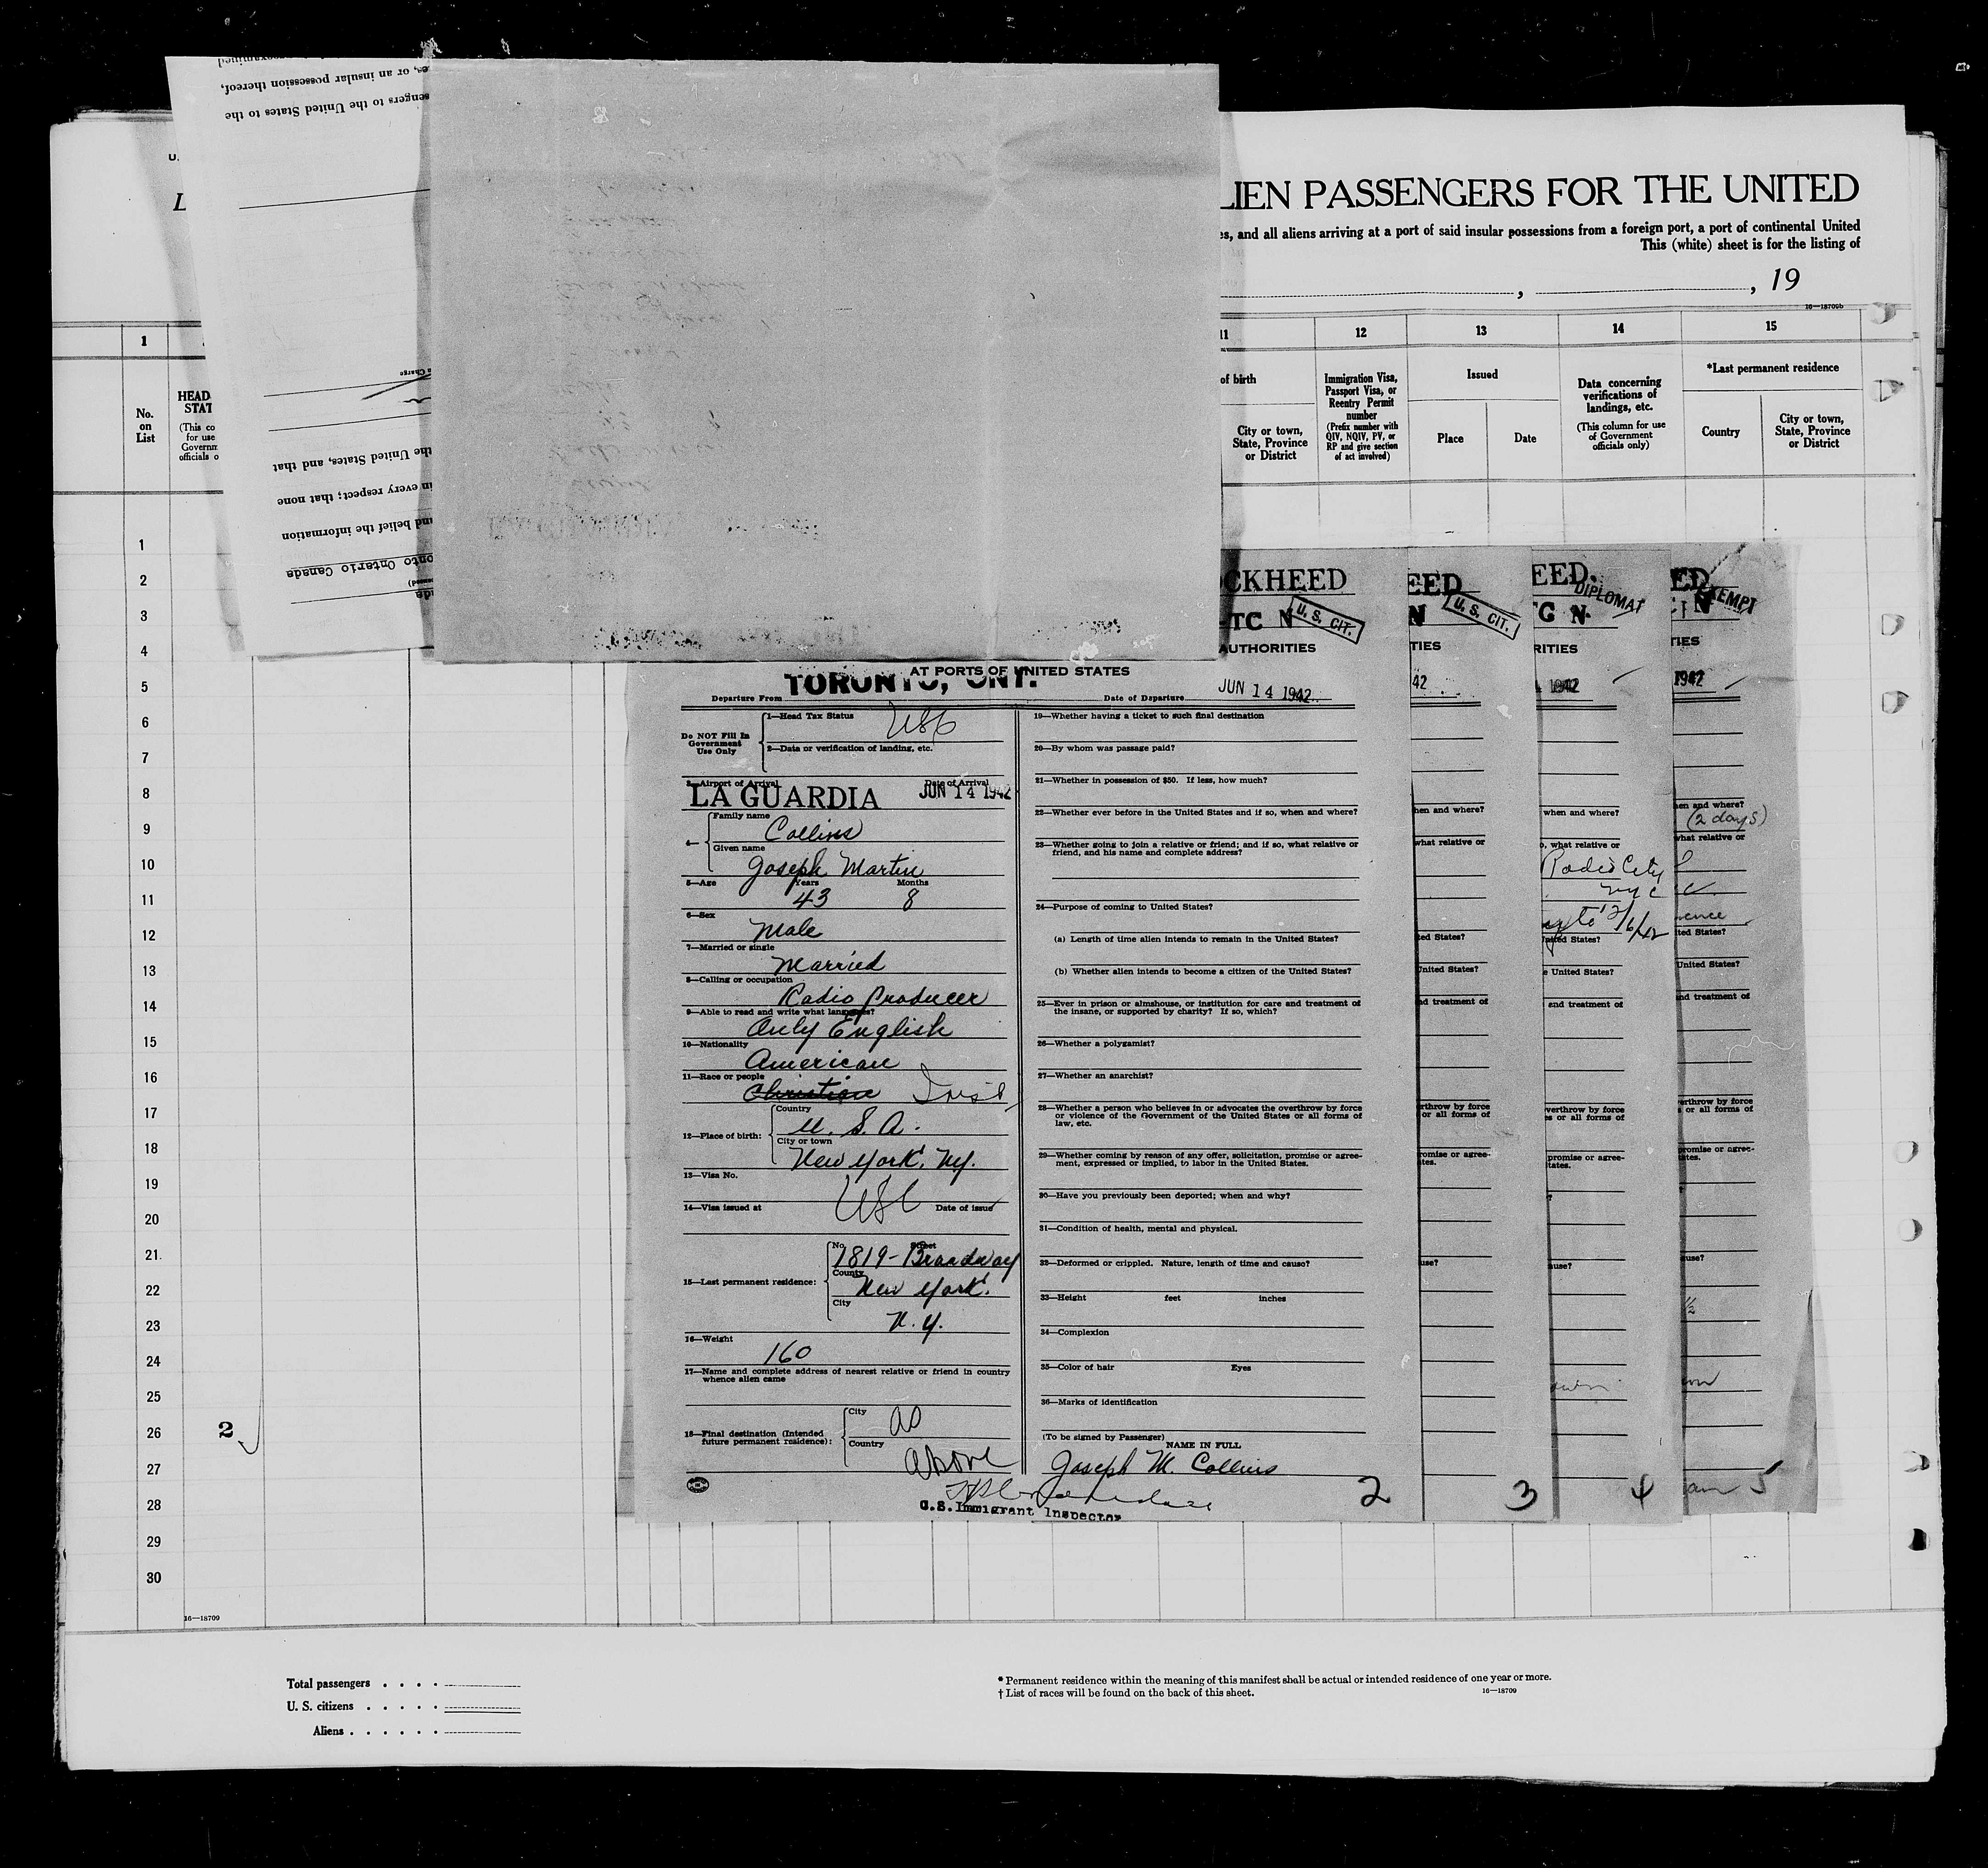 examined
es, or an insular possession thereof,
sengers to the United States to the
Charge
the United States, and that
in every respect; that none
and belief the information
onto Ontario Canada
U.
L
LIEN PASSENGERS FOR THE UNITED
es, and all aliens arriving at a port of said insular possessions from a foreign port, a port of continental United
This (white) sheet is for the listing of
, , 19
16—18709b
1 11 12 13 14 15
No. on List
HEAD
STAT
(This co
for use
Governm
officials o
of birth
City or town,
State, Province
or District
Immigration Visa,
Passport Visa, or
Reentry Permit
number
(Prefix number with
QIV, NQIV, PV, or
RP and give section
of act involved)
Issued
Place Date
Data concerning
verifications of
landings, etc.
(This column for use
of Government
officials only)
*Last permanent residence
Country
City or town,
State, Province
or District
1
2
3
4
5
6
7
8
9
10
11
12
13
14
15
16
17
18
19
20
21
22
23
24
25
2 26
27
28
29
30
16—18709
CKHEED
-TC N
U. S. CIT.
AUTHORITIES
AT PORTS OF UNITED STATES
Departure From TORONTO, ONT.
Date of Departure JUN 14 1942
Do NOT Fill In
Government
Use Only
1—Head Tax Status USC
2—Data or verification of landing, etc.
3—Airport of Arrival Date of Arrival
LA GUARDIA JUN 14 1942
4— Family name
Collins
Given name
Joseph Martin
5—Age Years Months
43 8
6—Sex
Male
7—Married or single
Married
8—Calling or occupation
Radio Producer
9—Able to read and write what languages?
Only English
10—Nationality
American
11—Race or people
Christian Irish
12—Place of birth: Country
U. S. A.
City or town
New York, N.Y.
13—Visa No.
USC
14—Visa issued at Date of issue
15—Last permanent residence:
No. Street
1819- Broadway
County
New York
City
N. Y.
16—Weight
160
17—Name and complete address of nearest relative or friend in country
whence alien came
18—Final destination (Intended
future permanent residence):
City as
Country above
U.S. Immigrant Inspector
19—Whether having a ticket to such final destination
20—By whom was passage paid?
21—Whether in possession of $50. If less, how much?
22—Whether ever before in the United States and if so, when and where?
23—Whether going to join a relative or friend; and if so, what relative or
friend, and his name and complete address?
24—Purpose of coming to United States?
(a) Length of time alien intends to remain in the United States?
(b) Whether alien intends to become a citizen of the United States?
25—Ever in prison or almshouse, or institution for care and treatment of
the insane, or supported by charity? If so, which?
26—Whether a polygamist?
27—Whether an anarchist?
28—Whether a person who believes in or advocates the overthrow by force
or violence of the Government of the United States or all forms of
law, etc.
29—Whether coming by reason of any offer, solicitation, promise or agree-
ment, expressed or implied, to labor in the United States.
30—Have you previously been deported; when and why?
31—Condition of health, mental and physical.
32—Deformed or crippled. Nature, length of time and cause?
33—Height feet inches
34—Complexion
35—Color of hair Eyes
36—Marks of identification
(To be signed by Passenger)
NAME IN FULL
Joseph M. Collins
2
EED
N
U. S. CIT.
TIES
42
hen and where?
what relative or
ted States?
United States?
nd treatment of
rthrow by force
or all forms of
romise or agree-
tes.
use?
3
EED.
DIPLOMAT
G N
RITIES
1942
when and where?
o, what relative or
Radio City
NYC
United States?
e United States?
and treatment of
verthrow by force
s or all forms of
promise or agree-
tates.
?
ause?
4
ED
EXEMPT
N
TIES
1942
en and where?
(2 days)
what relative or
ted States?
United States?
nd treatment of
erthrow by force
s or all forms of
promise or agree-
ates.
ause?
1/2
5
Total passengers . . . .
U. S. citizens . . . . .
Aliens . . . . . .
* Permanent residence within the meaning of this manifest shall be actual or intended residence of one year or more.
† List of races will be found on the back of this sheet.
16—18709